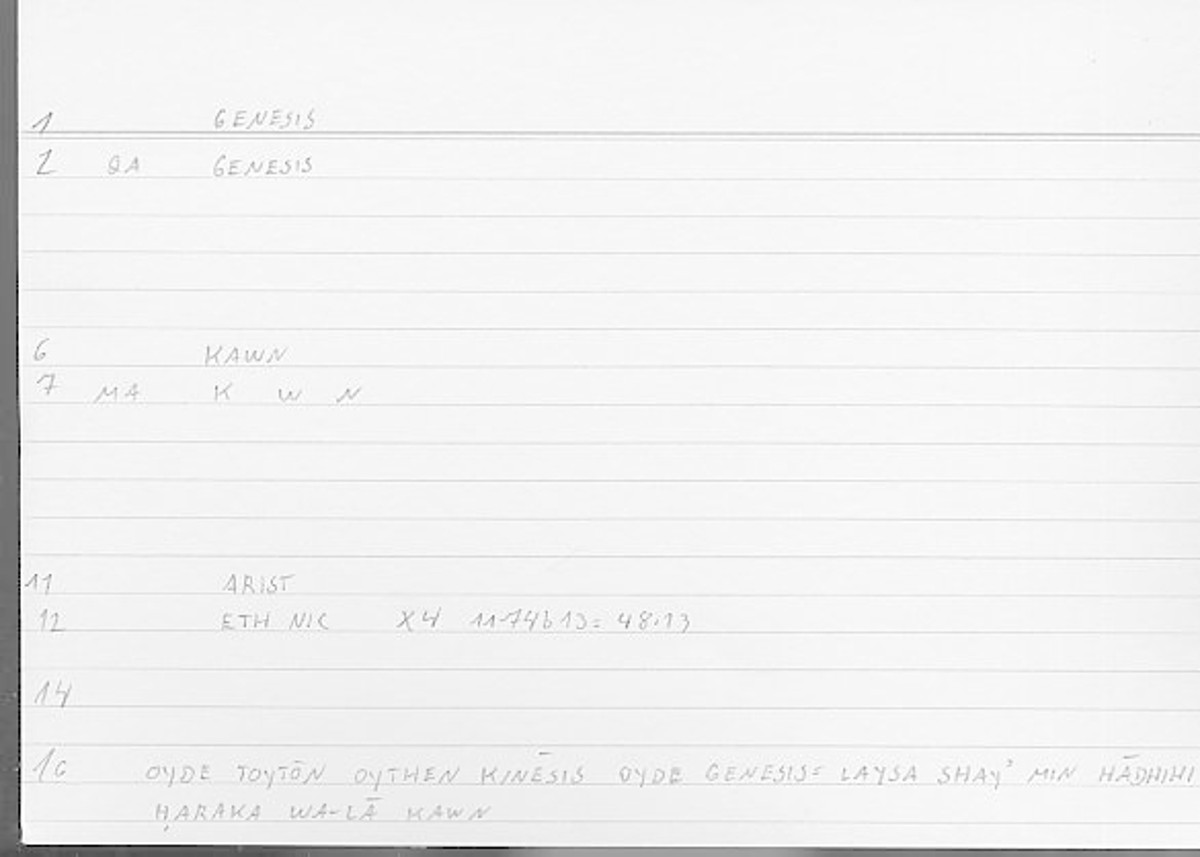 1 GENESIS
2 QA GENESIS
6 KAWN
7 MA K W N
11 ARIST
12 ETH NIC X4 1174b13= 48.13
14
16 OYDE TOYTŌN OYTHEN KINĒSIS OYDE GENESIS= LAYSA SHAYʾ MIN HĀDHIHI
ḤARAKA WA-LĀ KAWN